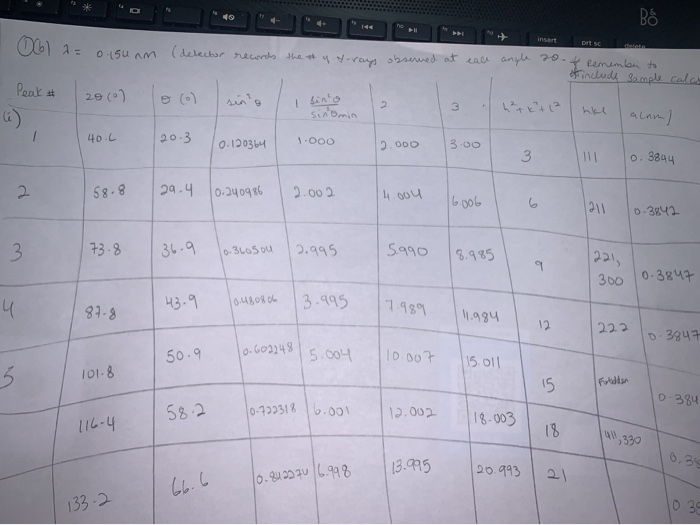 insert
prt sc
delete
①(b) λ = 0.154 nm (detector records the # of x-rays observed at each angle 2θ. Remember to
include sample calcs
Peak # 2θ (°) θ (°) sin²θ 1 sin²θ 2 3 h²+k²+l² hkl a(nm)
sin²θmin
(i)
1 40.6 20.3 0.120364 1.000 2.000 3.00 3 111 0.3844
2 58.8 29.4 0.240986 2.002 4.004 6.006 6 211 0.3842
3 73.8 36.9 0.360504 2.995 5.990 8.985 9 221, 0.3847
300
4 87.8 43.9 0.480806 3.995 7.989 11.984 12 222 0.3847
5 101.8 50.9 0.602248 5.004 10.007 15.011 15 Forbidden 0.384
116.4 58.2 0.722318 6.001 12.002 18.003 18 411,330 0.38
133.2 66.6 0.842274 6.998 13.995 20.993 21 0.38